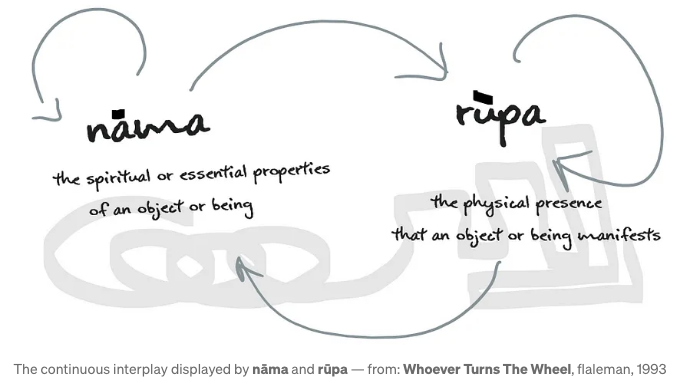 nāma
the spiritual or essential properties
of an object or being
rūpa
the physical presence
that an object or being manifests
The continuous interplay displayed by nāma and rūpa — from: Whoever Turns The Wheel, flaleman, 1993